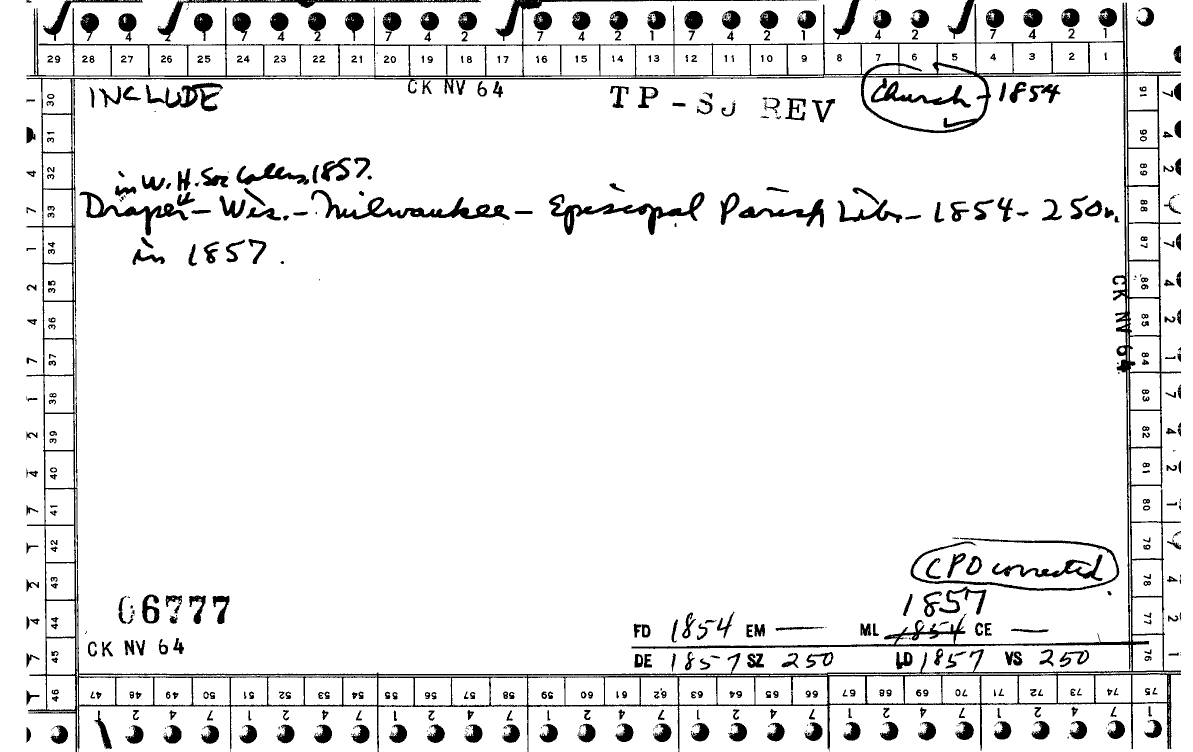 7 4 2 1 7 4 2 1 7 4 2 1 7 4 2 1 7 4 2 1 7 4 2 1 7 4 2 1
29 28 27 26 25 24 23 22 21 20 19 18 17 16 15 14 13 12 11 10 9 8 7 6 5 4 3 2 1
INCLUDE CK NV 64 TP - SJ REV Church - 1854
in W. H. Soc Collens, 1857.
Draper - Wis. - Milwaukee - Episcopal Parish Libr. - 1854 - 250 v.
in 1857.
CK NV 64
CPO corrected
06777
1857
FD 1854 EM — ML 1854 CE —
CK NV 64
DE 1857 SZ 250 LD 1857 VS 250
30 31 32 33 34 35 36 37 38 39 40 41 42 43 44 45 46
91 90 89 88 87 86 85 84 83 82 81 80 79 78 77 76 75
47 48 49 50 51 52 53 54 55 56 57 58 59 60 61 62 63 64 65 66 67 68 69 70 71 72 73 74
1 2 4 7 1 2 4 7 1 2 4 7 1 2 4 7 1 2 4 7 1 2 4 7 1 2 4 7